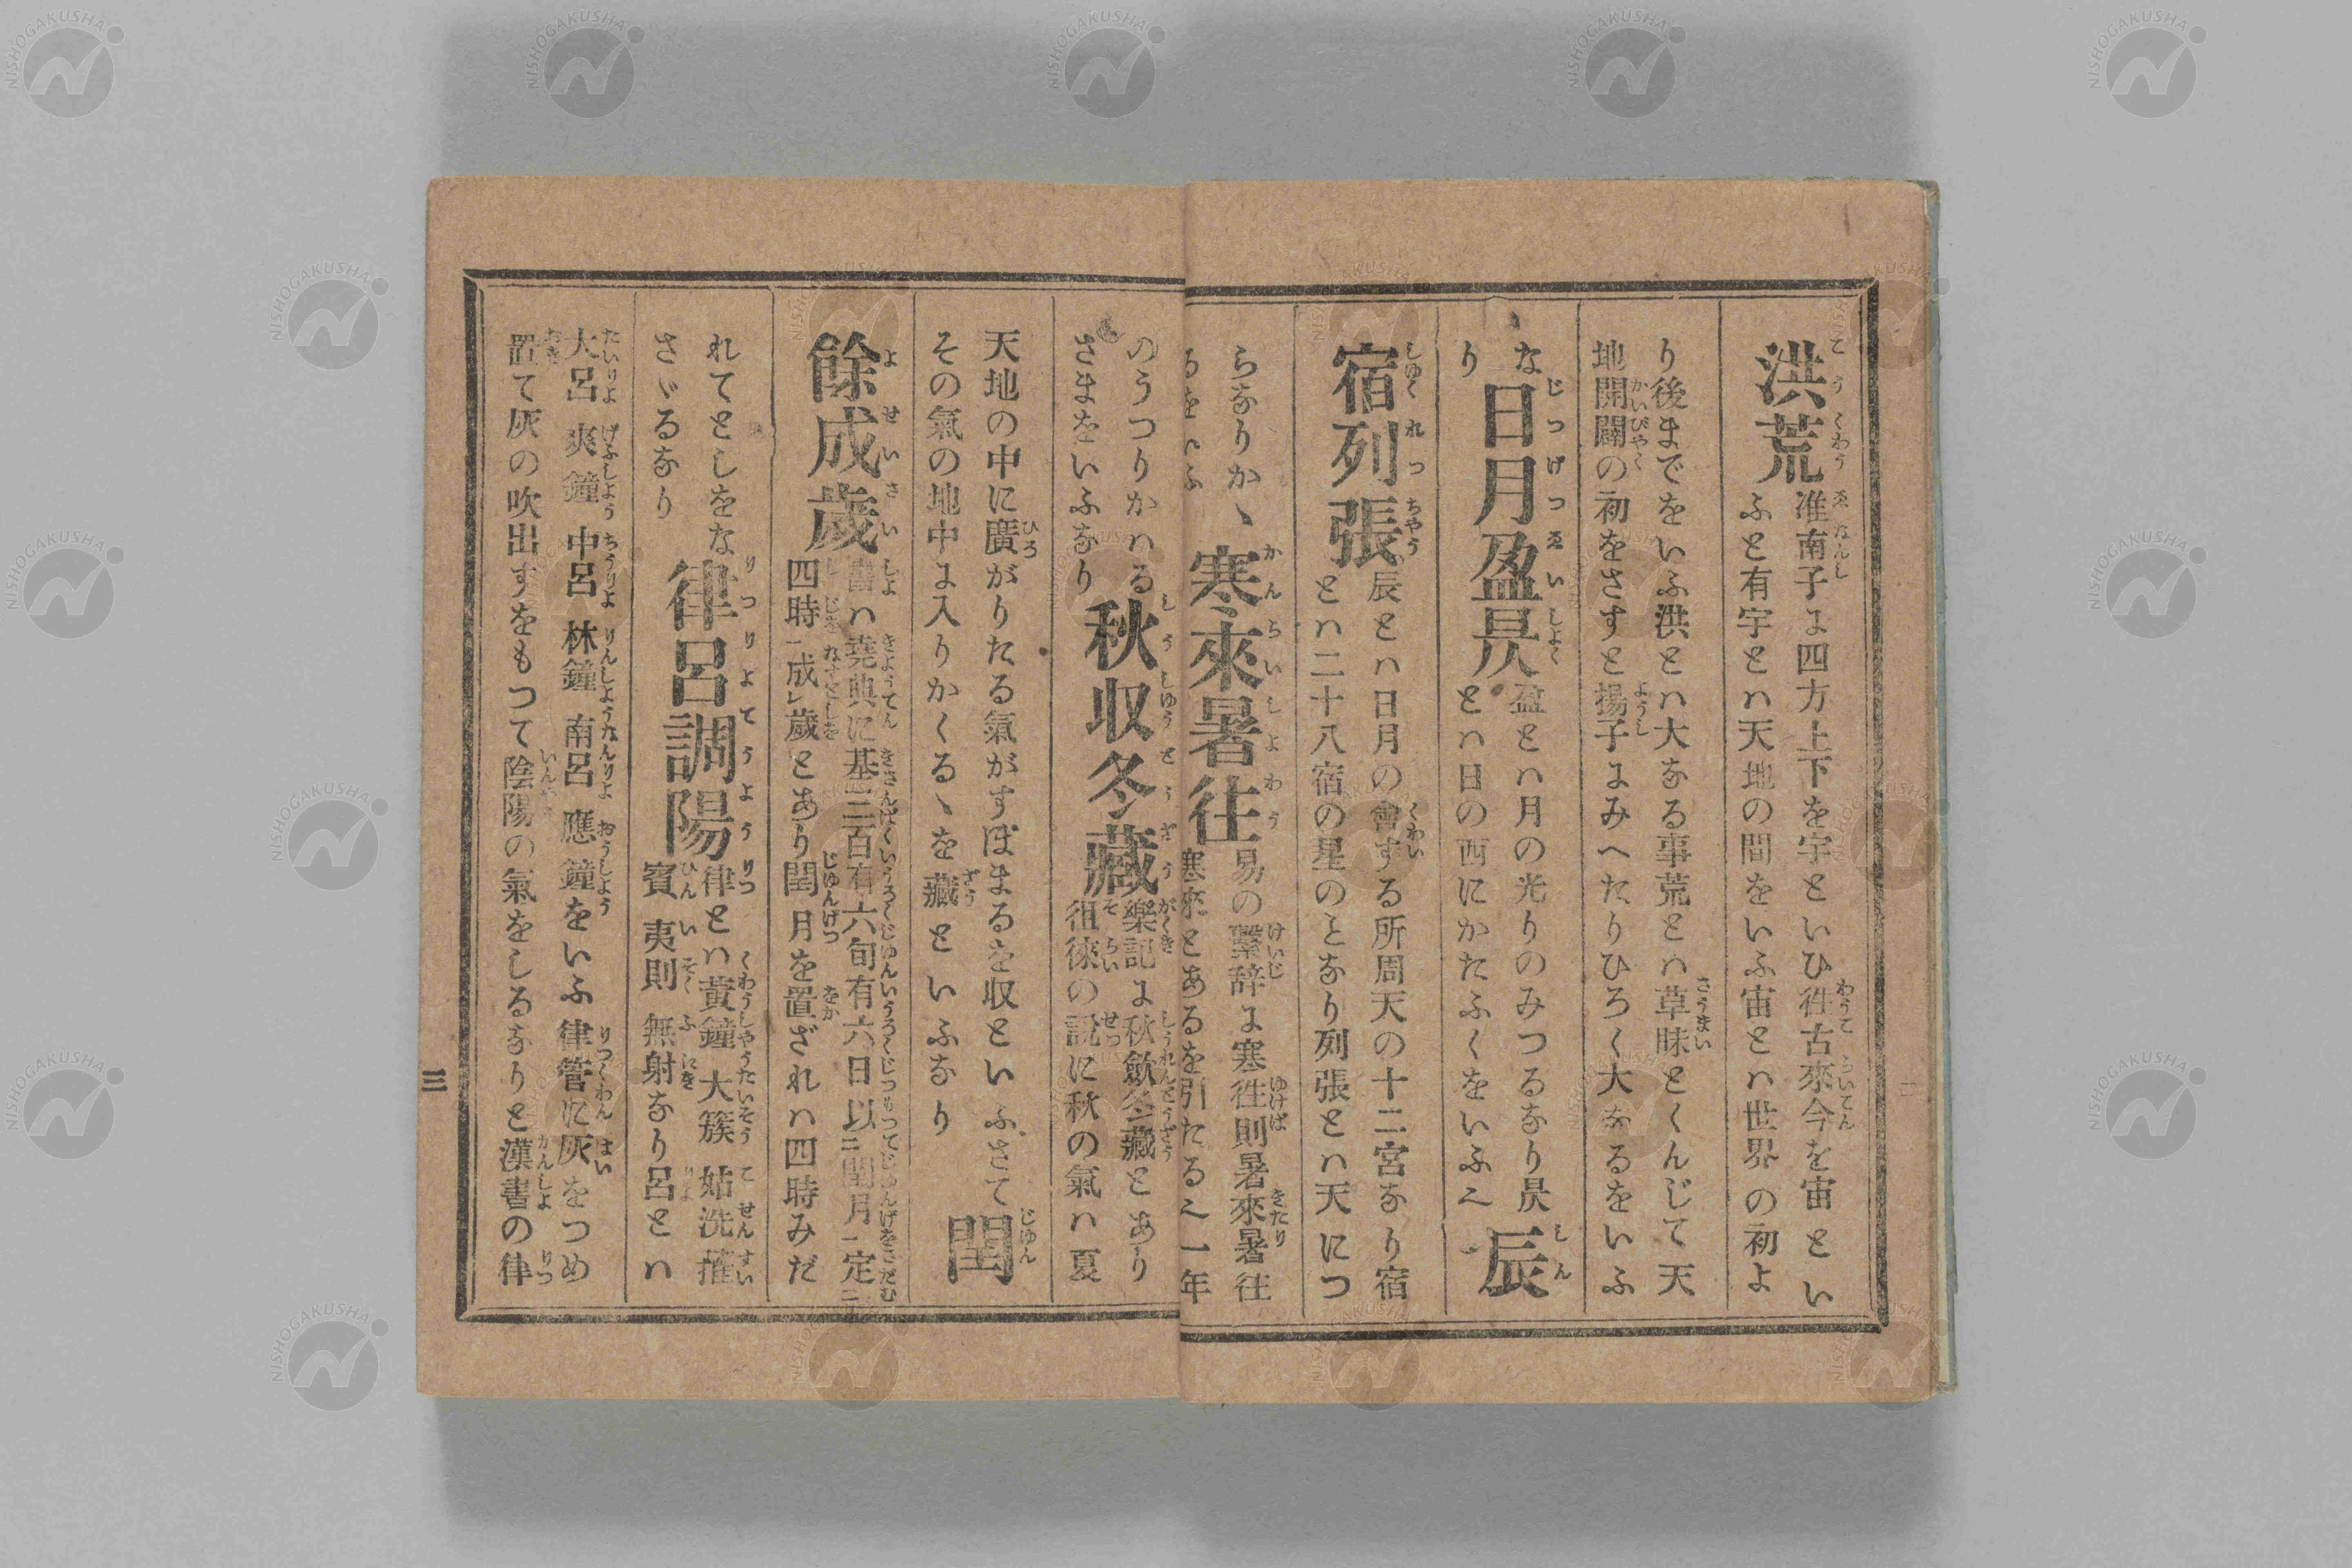 洪荒
准南子よ四方上下を宇といひ徃古來今を宙とい
ふと有宇とハ天地の間をいふ宙とハ世界の初よ
り後までをいふ洪とハ大なる事荒とハ草昧とくんじて天
地開闢の初をさすと揚子よみへたりひろく大なるをいふ
な
り
日月盈昃
盈とハ月の光りのみつるなり昃
とハ日の西にかたふくをいふ
辰
宿列張
辰とハ日月の會する所周天の十二宮なり宿
とハ二十八宿の星のとなり列張とハ天につ
らなりかゝ
るをいふ
寒來暑往
易の繫辞よ寒徃則暑來暑往
寒來とあるを引たる一年
のうつりかハる
さまをいふなり
秋収冬藏
樂記よ秋歛冬藏とあり
徂徠の説に秋の氣ハ夏
天地の中に廣がりたる氣がすぼまるを収といふさて
その氣の地中よ入りかくるゝを藏といふなり
閏
餘成歲
書ハ堯典に基三百有六旬有六日以閏月定
四時成歲とあり閏月を置ざれハ四時みだ
れてとしをな
さゞるなり
律呂調陽
律とハ黃鐘大簇姑洗蕤
賓夷則無射なり呂とハ
大呂夾鐘中呂林鐘南呂應鐘をいふ律管に灰をつめ
置て灰の吹出すをもつて陰陽の氣をしるなりと漢書の律
三
NISHOGAKUSHA